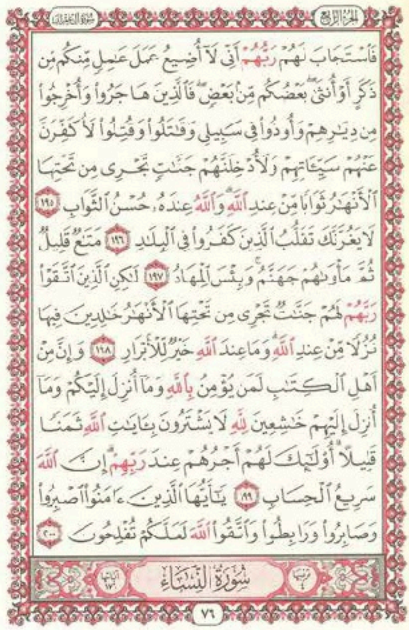 سورة آل عمران
الجزء الرابع
فَٱسْتَجَابَ لَهُمْ رَبُّهُمْ أَنِّى لَآ أُضِيعُ عَمَلَ عَٰمِلٍ مِّنكُم مِّن
ذَكَرٍ أَوْ أُنثَىٰ ۖ بَعْضُكُم مِّنۢ بَعْضٍ ۖ فَٱلَّذِينَ هَاجَرُوا۟ وَأُخْرِجُوا۟
مِن دِيَٰرِهِمْ وَأُوذُوا۟ فِى سَبِيلِى وَقَٰتَلُوا۟ وَقُتِلُوا۟ لَأُكَفِّرَنَّ
عَنْهُمْ سَيِّـَٔاتِهِمْ وَلَأُدْخِلَنَّهُمْ جَنَّٰتٍ تَجْرِى مِن تَحْتِهَا
ٱلْأَنْهَٰرُ ثَوَابًا مِّنْ عِندِ ٱللَّهِ ۗ وَٱللَّهُ عِندَهُۥ حُسْنُ ٱلثَّوَابِ ١٩٥
لَا يَغُرَّنَّكَ تَقَلُّبُ ٱلَّذِينَ كَفَرُوا۟ فِى ٱلْبِلَٰدِ ١٩٦ مَتَٰعٌ قَلِيلٌ
ثُمَّ مَأْوَىٰهُمْ جَهَنَّمُ ۚ وَبِئْسَ ٱلْمِهَادُ ١٩٧ لَٰكِنِ ٱلَّذِينَ ٱتَّقَوْا۟
رَبَّهُمْ لَهُمْ جَنَّٰتٌ تَجْرِى مِن تَحْتِهَا ٱلْأَنْهَٰرُ خَٰلِدِينَ فِيهَا
نُزُلًا مِّنْ عِندِ ٱللَّهِ ۗ وَمَا عِندَ ٱللَّهِ خَيْرٌ لِّلْأَبْرَارِ ١٩٨ وَإِنَّ مِنْ
أَهْلِ ٱلْكِتَٰبِ لَمَن يُؤْمِنُ بِٱللَّهِ وَمَآ أُنزِلَ إِلَيْكُمْ وَمَآ
أُنزِلَ إِلَيْهِمْ خَٰشِعِينَ لِلَّهِ لَا يَشْتَرُونَ بِـَٔايَٰتِ ٱللَّهِ ثَمَنًا
قَلِيلًا ۗ أُو۟لَٰٓئِكَ لَهُمْ أَجْرُهُمْ عِندَ رَبِّهِمْ ۗ إِنَّ ٱللَّهَ
سَرِيعُ ٱلْحِسَابِ ١٩٩ يَٰٓأَيُّهَا ٱلَّذِينَ ءَامَنُوا۟ ٱصْبِرُوا۟
وَصَابِرُوا۟ وَرَابِطُوا۟ وَٱتَّقُوا۟ ٱللَّهَ لَعَلَّكُمْ تُفْلِحُونَ ٢٠٠
سُورَةُ ٱلنِّسَاءِ
٧٦